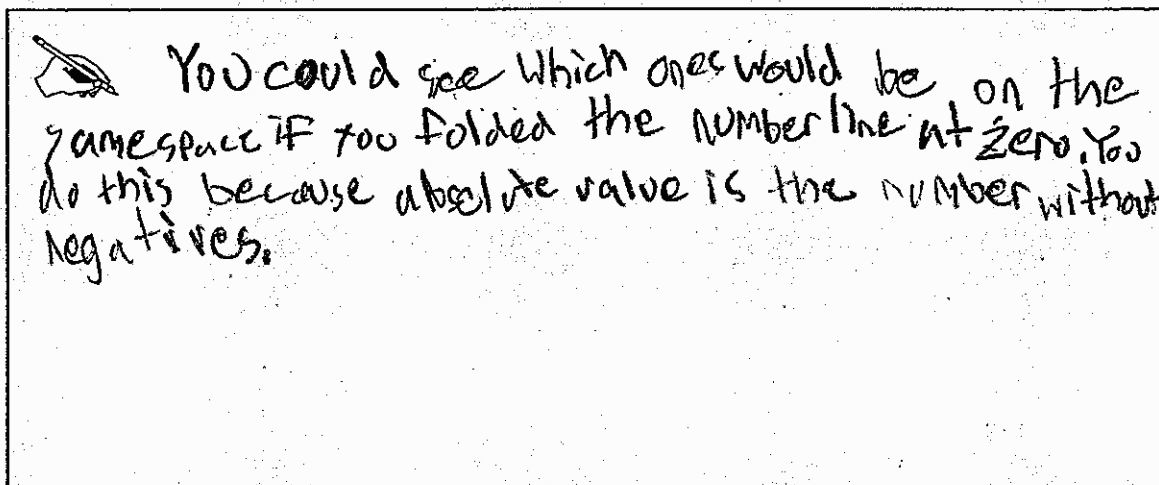 You could see which ones would be on the
samespace if you folded the number line at zero. You
do this because absolute value is the number without
negatives.